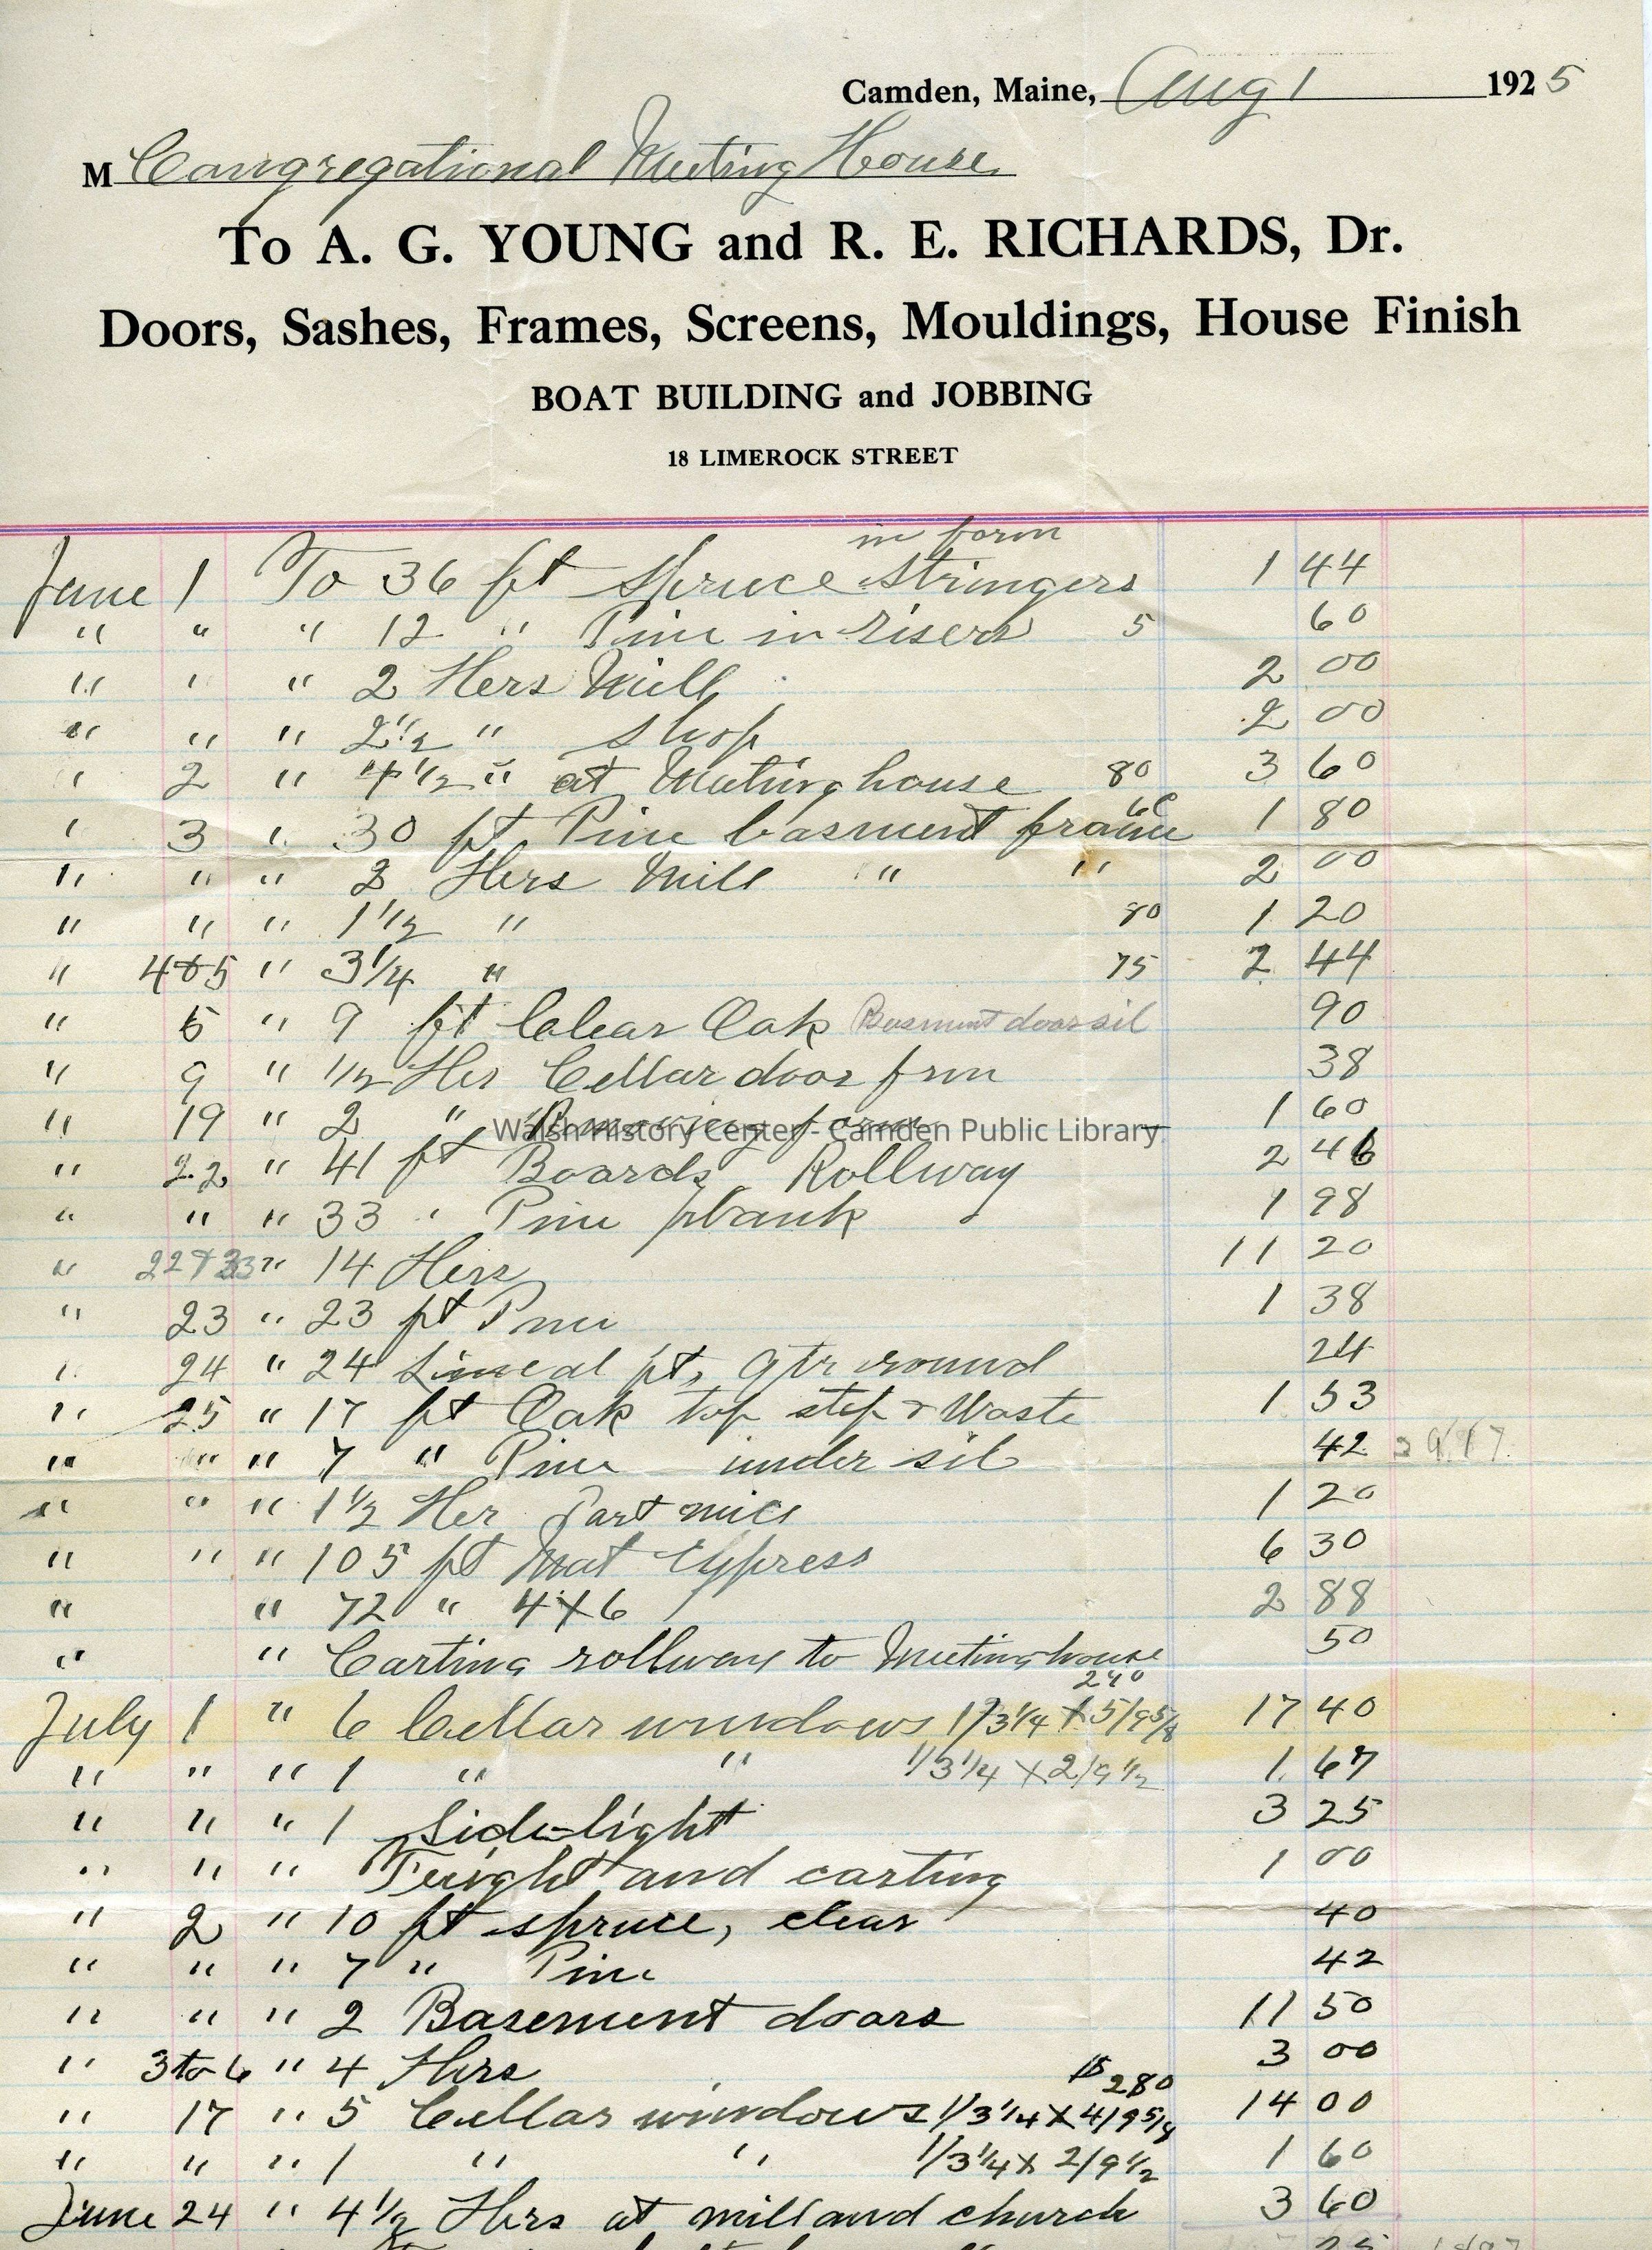 Camden, Maine, Aug 1 1925
M Congregational Meeting House.
To A. G. YOUNG and R. E. RICHARDS, Dr.
Doors, Sashes, Frames, Screens, Mouldings, House Finish
BOAT BUILDING and JOBBING
18 LIMEROCK STREET
in form
June 1 To 36 ft Spruce Stringers 1 44
" " " 12 " Pine in risers 5 60
" " " 2 Hers Mill 2 00
" " " 2 1/2 " Shop 2 00
" 2 " 4 1/2 " at Meetinghouse 80 3 60
" 3 " 30 ft Pine basment frame 6c 1 80
" " " 2 Hers Mill " " 2 00
" " " 1 1/2 " 80 1 20
" 4 to 5 " 3 1/4 " 75 2 44
" 5 " 9 ft Clear Oak Basment door sil 90
" 9 " 1/2 Her Cellar door frm 38
" 19 " 2 " Removing form 1 60
Walsh History Center - Camden Public Library
" 22 " 41 ft Boards Rollway 2 46
" " " 33 " Pine plank 1 98
" 22 & 23 " 14 Hers 11 20
" 23 " 23 ft Pine 1 38
" 24 " 24 Lineal ft, qtr round 24
" 25 " 17 ft Oak top step & Waste 1 53
" " " 7 " Pine under sil 42
" " " 1 1/2 Her Part mill 1 20
" " " 105 ft Mat Cypress 6 30
" " 72 " 4X6 2 88
" " Carting rollway to Meetinghouse 50
290
July 1 " 6 Cellar windows 1/3 1/4 X 5/9 5/8 17 40
" " " 1 " " 1/3 1/4 X 2/9 1/2 1 67
" " " 1 Side-light 3 25
" " " Freight and carting 1 00
" 2 " 10 ft spruce, clear 40
" " " 7 " Pine 42
" " " 2 Basement doors 11 50
" 3 to 6 " 4 Hers 3 00
280
" 17 " 5 Cellar windows 1/3 1/4 X 4/9 5/8 14 00
" " " 1 " " 1/3 1/4 X 2/9 1/2 1 60
June 24 " 4 1/2 Hers at mill and church 3 60